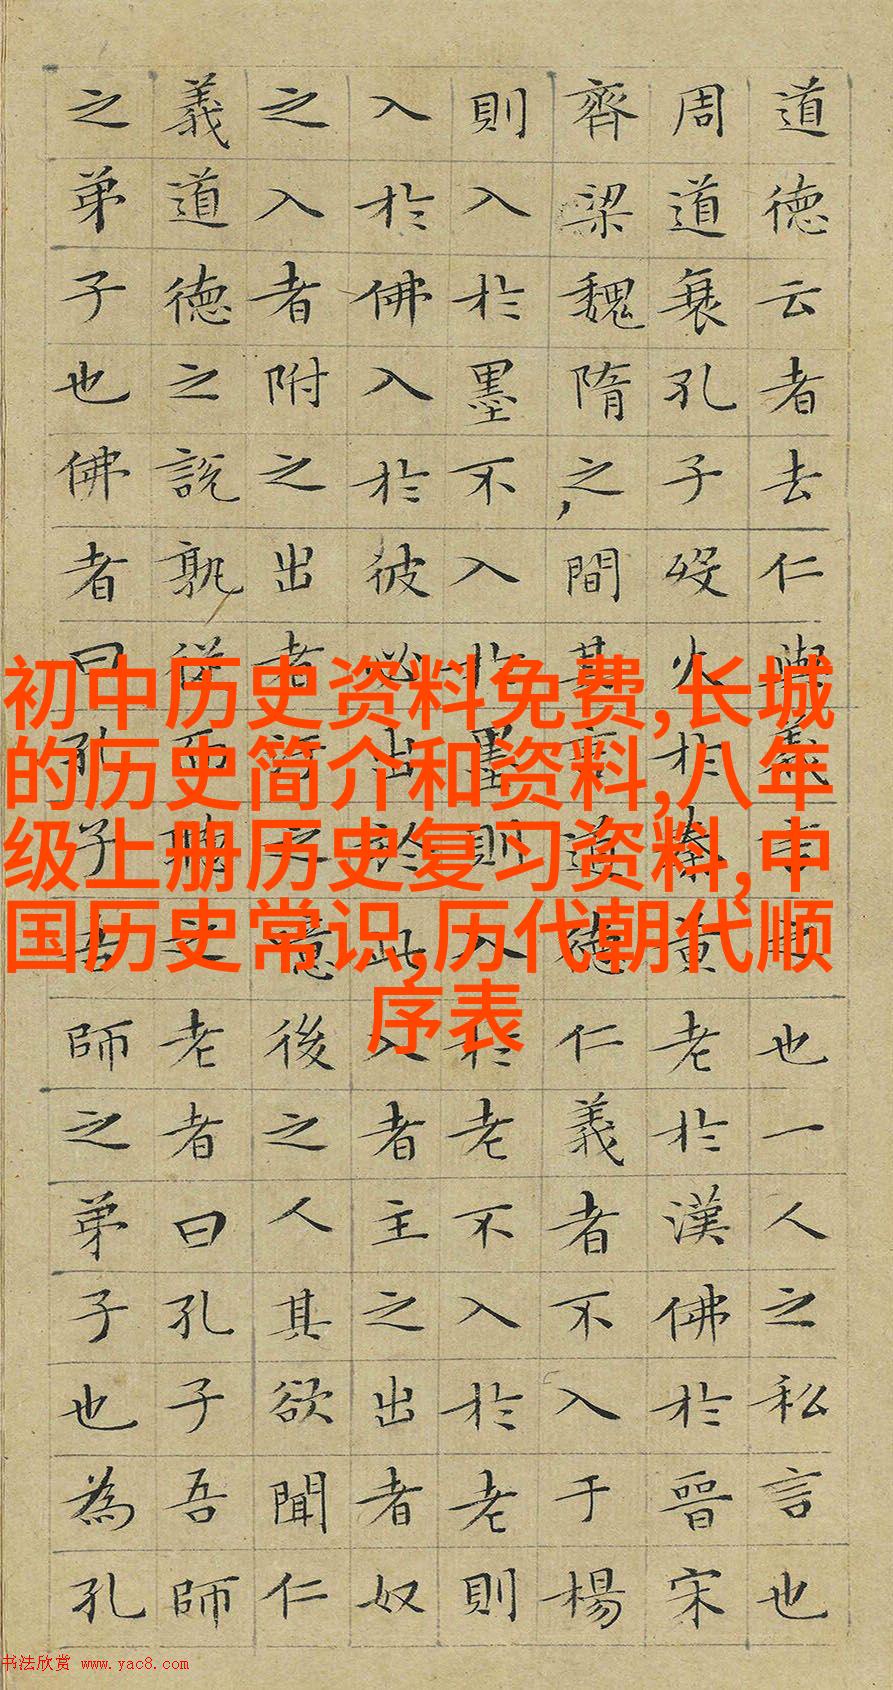 道德云者去仁與義言之也一人之私言也
周道衰孔子歿火於秦黃老於漢佛於晉宋
齊梁魏隋之間其言道德仁義者不入于楊
則入於墨不入於墨則入於老不入於老則
入於佛入於彼必出於此入者主之出者奴
之入者附之出者汙之噫後之人其欲聞仁
義道德之說孰從而聽之老者曰孔子吾師
之弟子也佛者曰孔子吾師之弟子也為孔
初中历史资料免费,长城
的历史简介和资料,八年
级上册历史复习资料,中
国历史常识,历代朝代顺
序表
书法欣赏 www.yac8.com